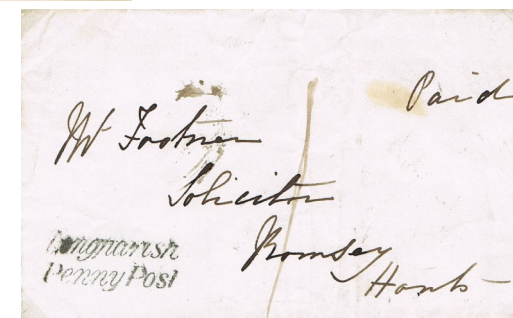 Paid
Mr Footner
Solicitor
Romsey
Hants
Longparish
Penny Post